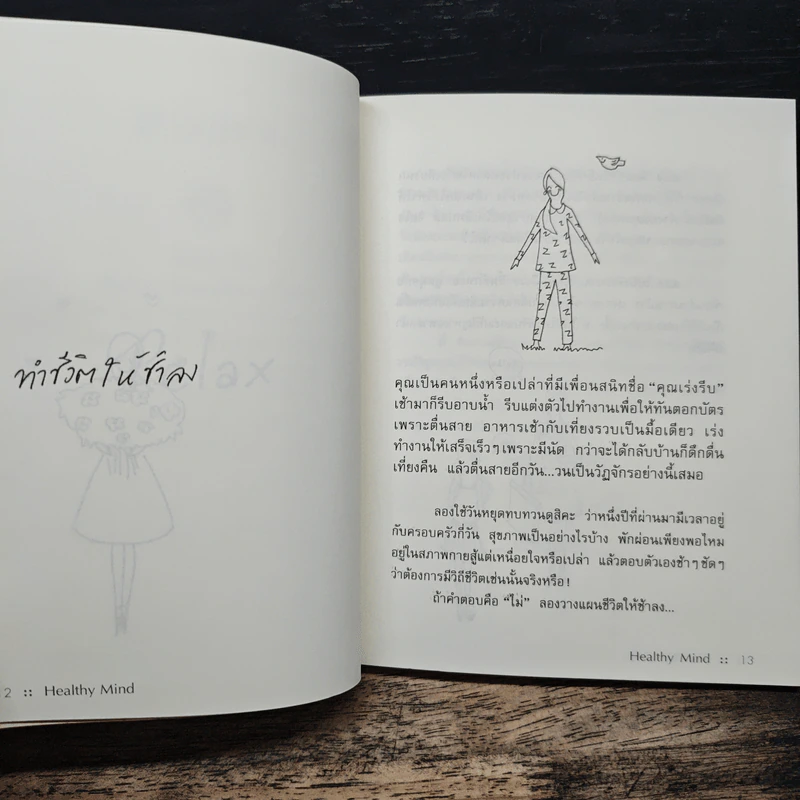 ทำชีวิตให้ช้าลง
2 :: Healthy Mind
คุณเป็นคนหนึ่งหรือเปล่าที่มีเพื่อนสนิทชื่อ “คุณเร่งรีบ”
เช้ามาก็รีบอาบน้ำ รีบแต่งตัวไปทำงานเพื่อให้ทันตอกบัตร
เพราะตื่นสาย อาหารเช้ากับเที่ยงรวบเป็นมื้อเดียว เร่ง
ทำงานให้เสร็จเร็วๆเพราะมีนัด กว่าจะได้กลับบ้านก็ดึกดื่น
เที่ยงคืน แล้วตื่นสายอีกวัน...วนเป็นวัฏจักรอย่างนี้เสมอ
ลองใช้วันหยุดทบทวนดูสิคะ ว่าหนึ่งปีที่ผ่านมามีเวลาอยู่
กับครอบครัวกี่วัน สุขภาพเป็นอย่างไรบ้าง พักผ่อนเพียงพอไหม
อยู่ในสภาพกายสู้แต่เหนื่อยใจหรือเปล่า แล้วตอบตัวเองช้าๆชัดๆ
ว่าต้องการมีวิถีชีวิตเช่นนั้นจริงหรือ!
ถ้าคำตอบคือ “ไม่” ลองวางแผนชีวิตให้ช้าลง...
Healthy Mind :: 13